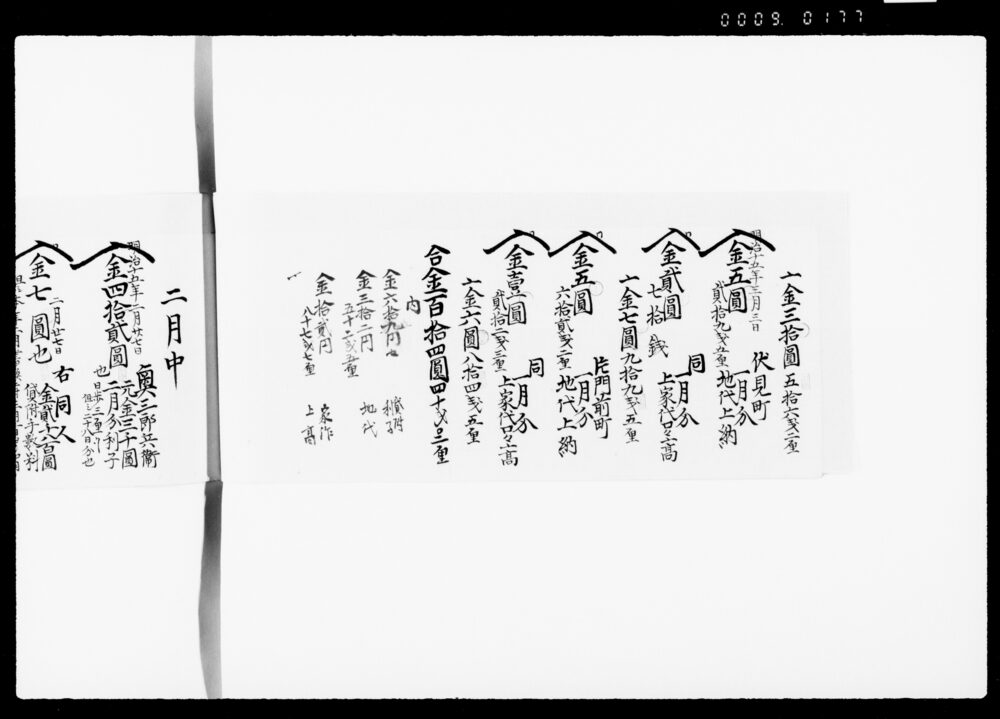 0009. 0177
〆金三拾圓五拾六戋二厘
明治十五年三月三日
金五圓 伏見町 一月分
貳拾九戋五厘 地代上納
金貳圓 同 一月分
七拾銭 上家代口々上高
〆金七圓九拾九戋五厘
金五圓 片門前町 一月分
六拾貳戋二厘 地代上納
金壹圓 同 一月分
貳拾二戋三厘 上家代口々上高
〆金六圓八拾四戋五厘
合金百拾四圓四十戋〇三厘
内
金六拾九円也 貸附利子
金三拾二円 地代
五十二戋五厘
金拾貳円 家作
八十七戋七厘 上高
二月中
明治十五年二月廿七日
金四拾貳圓 奥三郎兵衛
也 元金三千圓
二月分利子
日歩三厘
但シ二十八日分也
二月廿七日
金七圓也 右同人
金貳千六百圓
貸附手数料